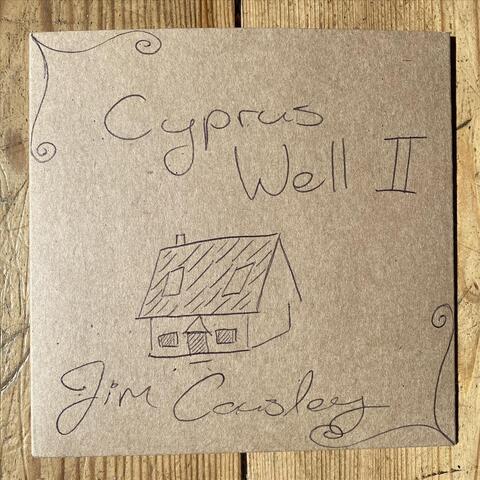 Cyprus
Well II
Jim Causley